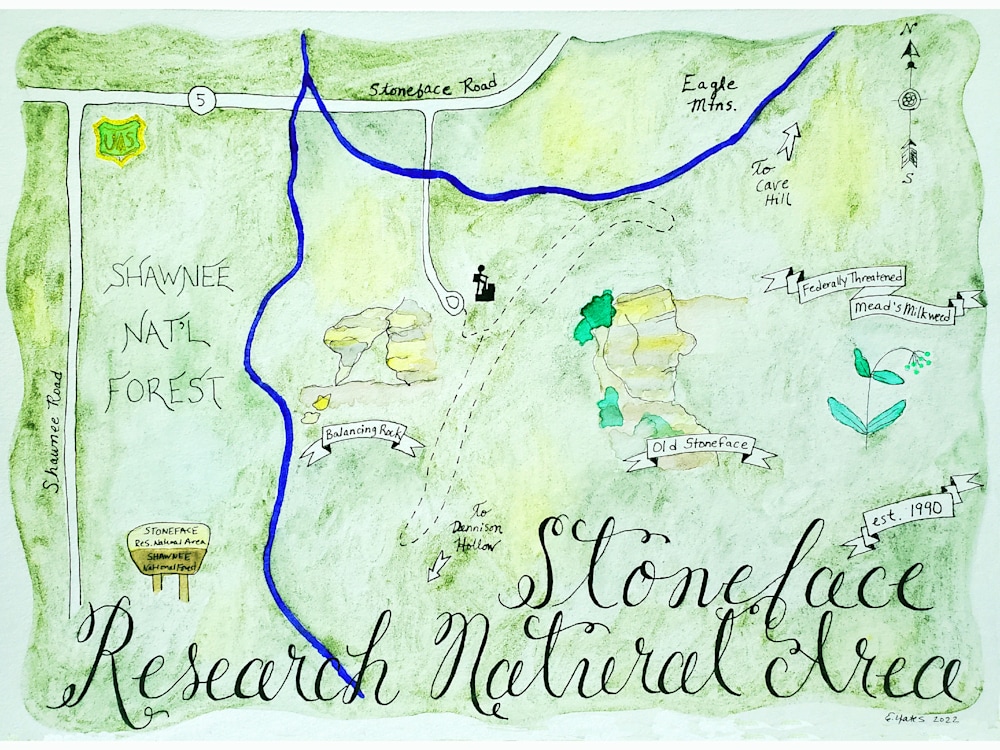 N
Stoneface Road
5
Eagle
Mtns.
UAS
To
Cave
Hill
S
SHAWNEE
NAT'L
FOREST
Federally Threatened
Mead's Milkweed
Shawnee Road
Balancing Rock
Old Stoneface
est. 1990
To
Dennison
Hollow
STONEFACE
Res. Natural Area
SHAWNEE
National Forest
Stoneface
Research Natural Area
E. Yates 2022